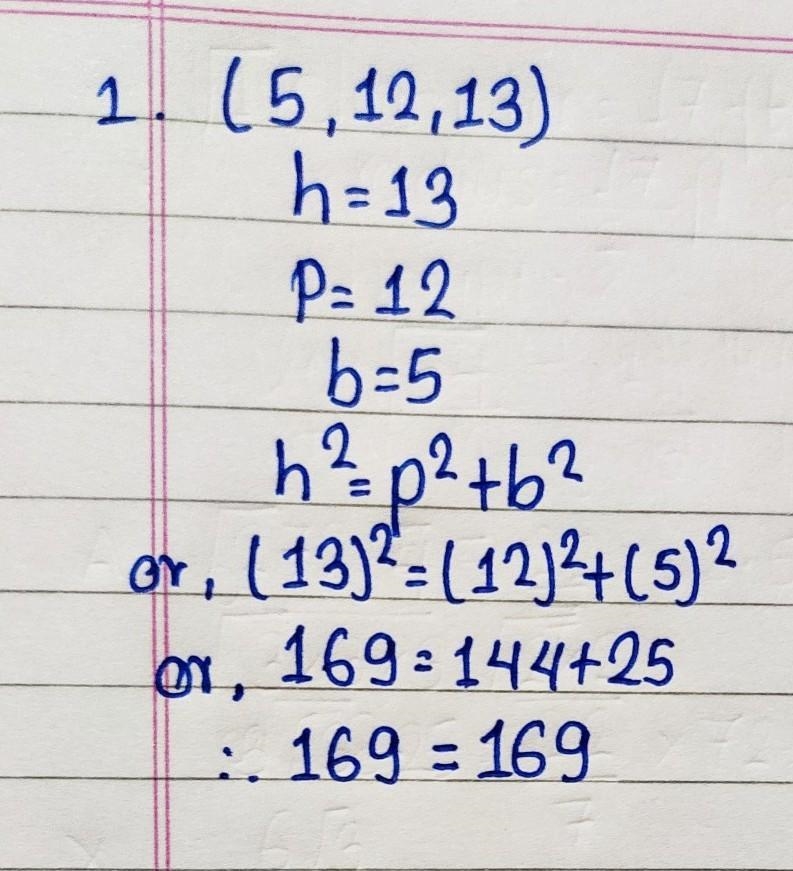 1. (5,12,13)
h=13
P=12
b=5
h²=p²+b²
or, (13)²=(12)²+(5)²
or, 169=144+25
∴ 169=169